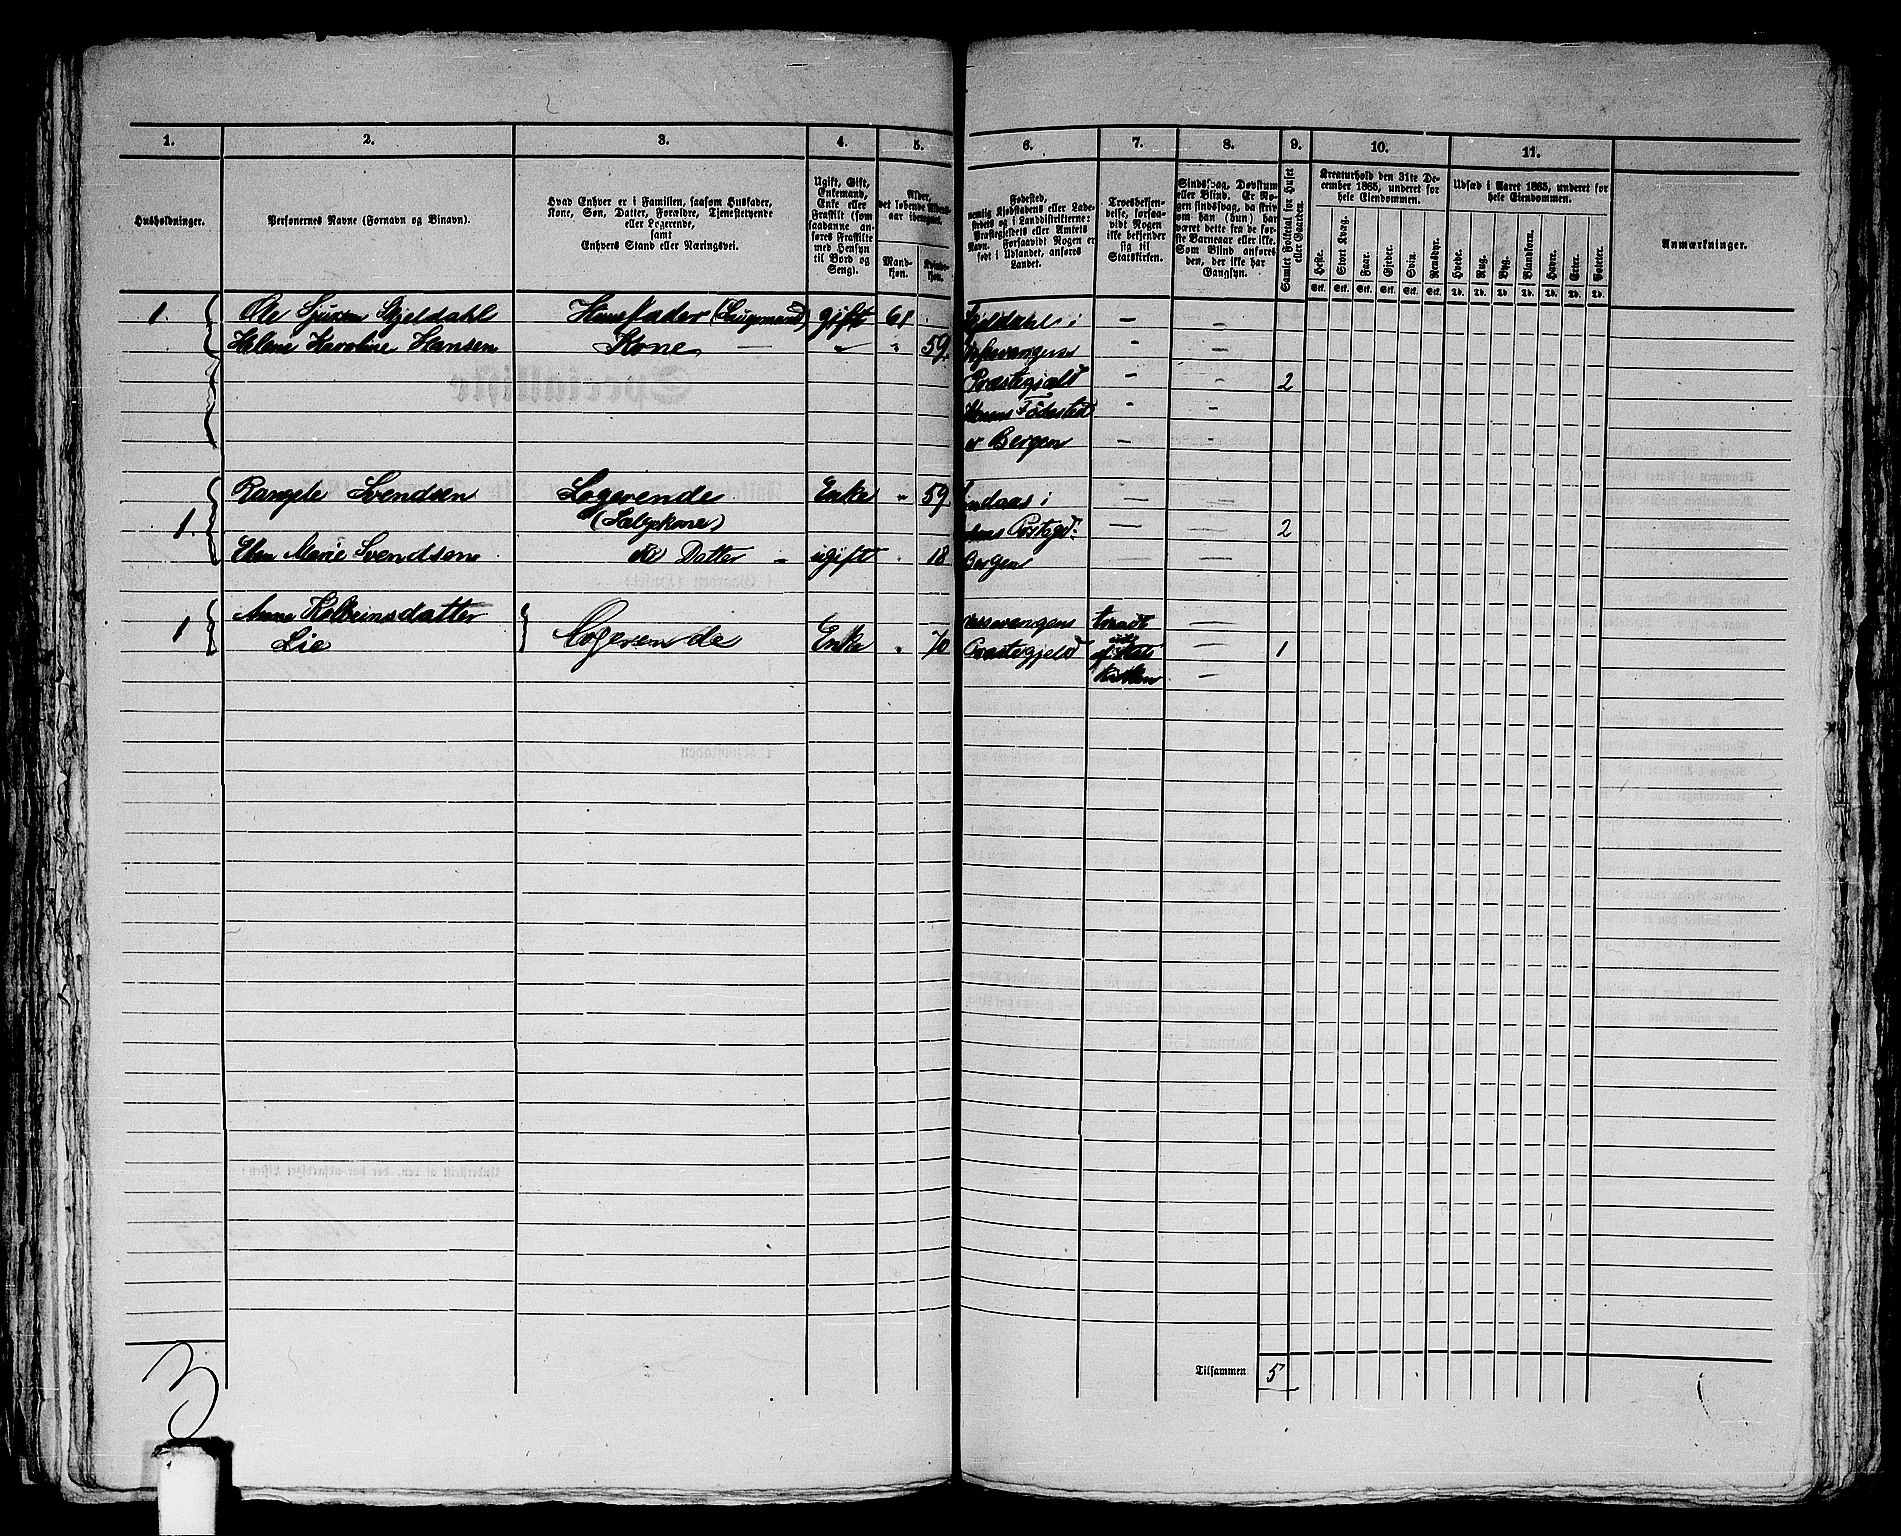 1. 2. 3. 4. 5. 6. 7. 8. 9. 10. 11.
Husholdninger.
Personernes Navne (Fornavn og Binavn).
Hvad Enhver er i Familien, saasom Husfader,
Kone, Søn, Datter, Forældre, Tjenestetyende
eller Logerende,
samt
Enhvers Stand eller Næringsvei.
Ugift, Gift,
Enkemand,
Enke eller
Fraskilt (som
saadanne an-
føres Fraskilte
med Hensyn
til Bord og
Seng).
Alder,
det løbende Alders-
aar iberegnet.
Mand-
kjøn.
Kvinde-
kjøn.
Fødested,
nemlig Kjøbstadens eller Lade-
stedets og i Landdistrikterne:
Præstegjeldets eller Amtets
Navn. Forsaavidt Nogen er
født i Udlandet, anføres
Landet.
Troesbekjen-
delse, forsaa-
vidt Nogen
ikke bekjender
sig til
Statskirken.
Sindssvag, Døvstum
eller Blind. Er No-
gen sindssvag, da skriv
om han (hun) har
været dette fra de før-
ste Barneaar eller ikke.
Som Blind anføres
den, der ikke har
Gangsyn.
Samlet Folketal for Huset
eller Gaarden.
Kreaturhold den 31te De-
cember 1865, underet for
hele Eiendommen.
Heste. Stort Kvæg. Faar. Gjeder. Svin. Rensdyr.
Stk. Stk. Stk. Stk. Stk. Stk.
Udsæd i Aaret 1865, underet for
hele Eiendommen.
Hvede. Rug. Byg. Blandkorn. Havre. Erter. Poteter.
Td. Td. Td. Td. Td. Td. Td.
Anmærkninger.
1. Ole Sjursen Skjeldahl Huusfader gift 61
Helene Karoline Hansen Kone — " " 59
Vossevangens
Præstegjeld 2
Konens Fødested
er Bergen
Rangele Svendsen Logerende Enke " 59 Lindaas i
1. (Sælgekone) 2
Elen Marie Svendsen Datter ugift 18 Bergen
Anna Kolbeinsdatter Vossevangens traadt
1 Lie Logerende Enke " 70 Præstegjeld ud af Stats 1
Kirken
3
Tilsammen 5